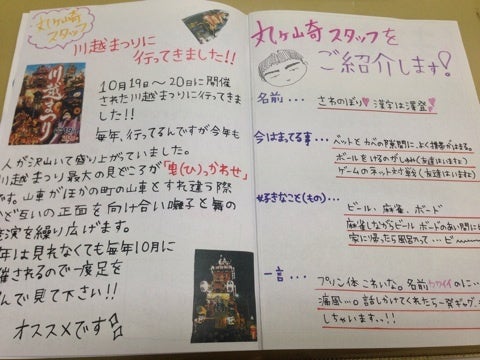 丸ヶ崎
スタッフ
川越まつりに
行ってきました!!
川越まつり
10月19日〜20日に開催
された川越まつりに行ってきま
した!!
毎年、行ってるんですが今年も
人が沢山いて盛り上がっていました。
川越まつり最大の見どころが「曳(ひ)っかわせ」
です。山車がほかの町の山車とすれ違う際
に互いの正面を向け合い囃子と舞の
演を繰り広げます。
年は見れなくても毎年10月に
催されるので一度足を
んで見て下さい!!
オススメです
丸ヶ崎スタッフを
ご紹介します!
名前・・・ さわのぼり♥漢字は澤登♥
今はまってる事・・・ ベットとカベの隙間に、よく携帯がはまる。
ボールをけるのがしゅみ(友達はいますと)
ゲームのネット対戦(友達はいますと)
好きなこと(もの)・・・ ビール、麻雀、ボード
麻雀しながらビール ボードのあい間にビ
家に帰ったら風呂入って・・・ビー
一言・・・ プリン体こわいな。名前カワイイのに・・
痛風・・・。話しかけてくれたら一発ギャグ、
しちゃいます・・!!